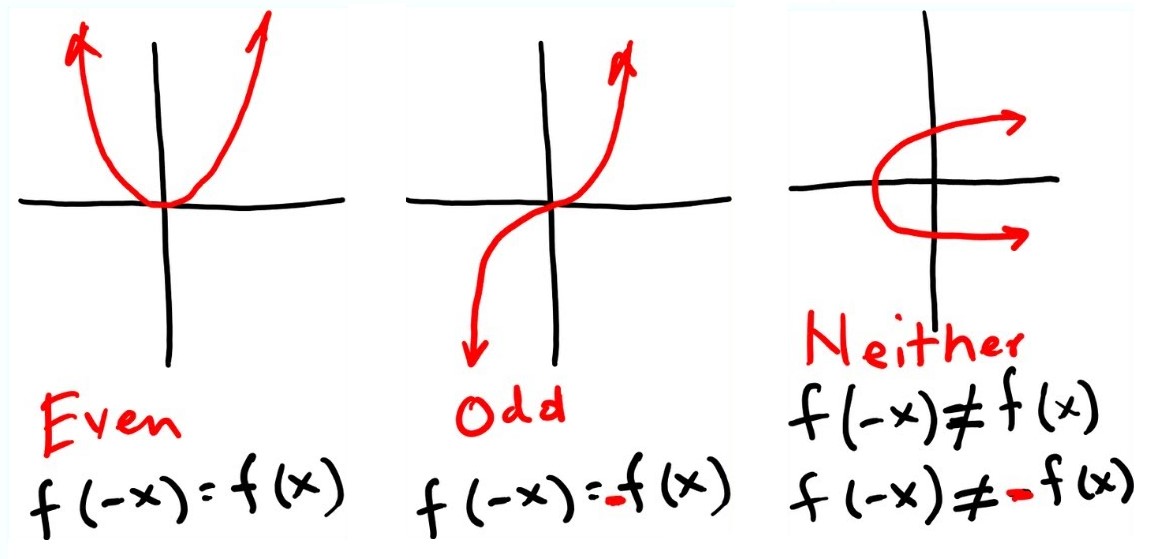 Even
f(-x)=f(x)
Odd
f(-x)=-f(x)
Neither
f(-x)≠f(x)
f(-x)≠-f(x)